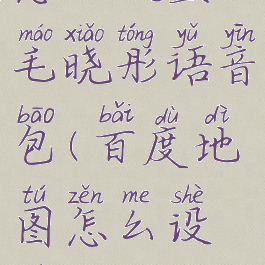 máo xiǎo tóng yǔ yīn
毛晓彤语音
bāo bǎi dù dì
包(百度地
tú zěn me shè
图怎么设